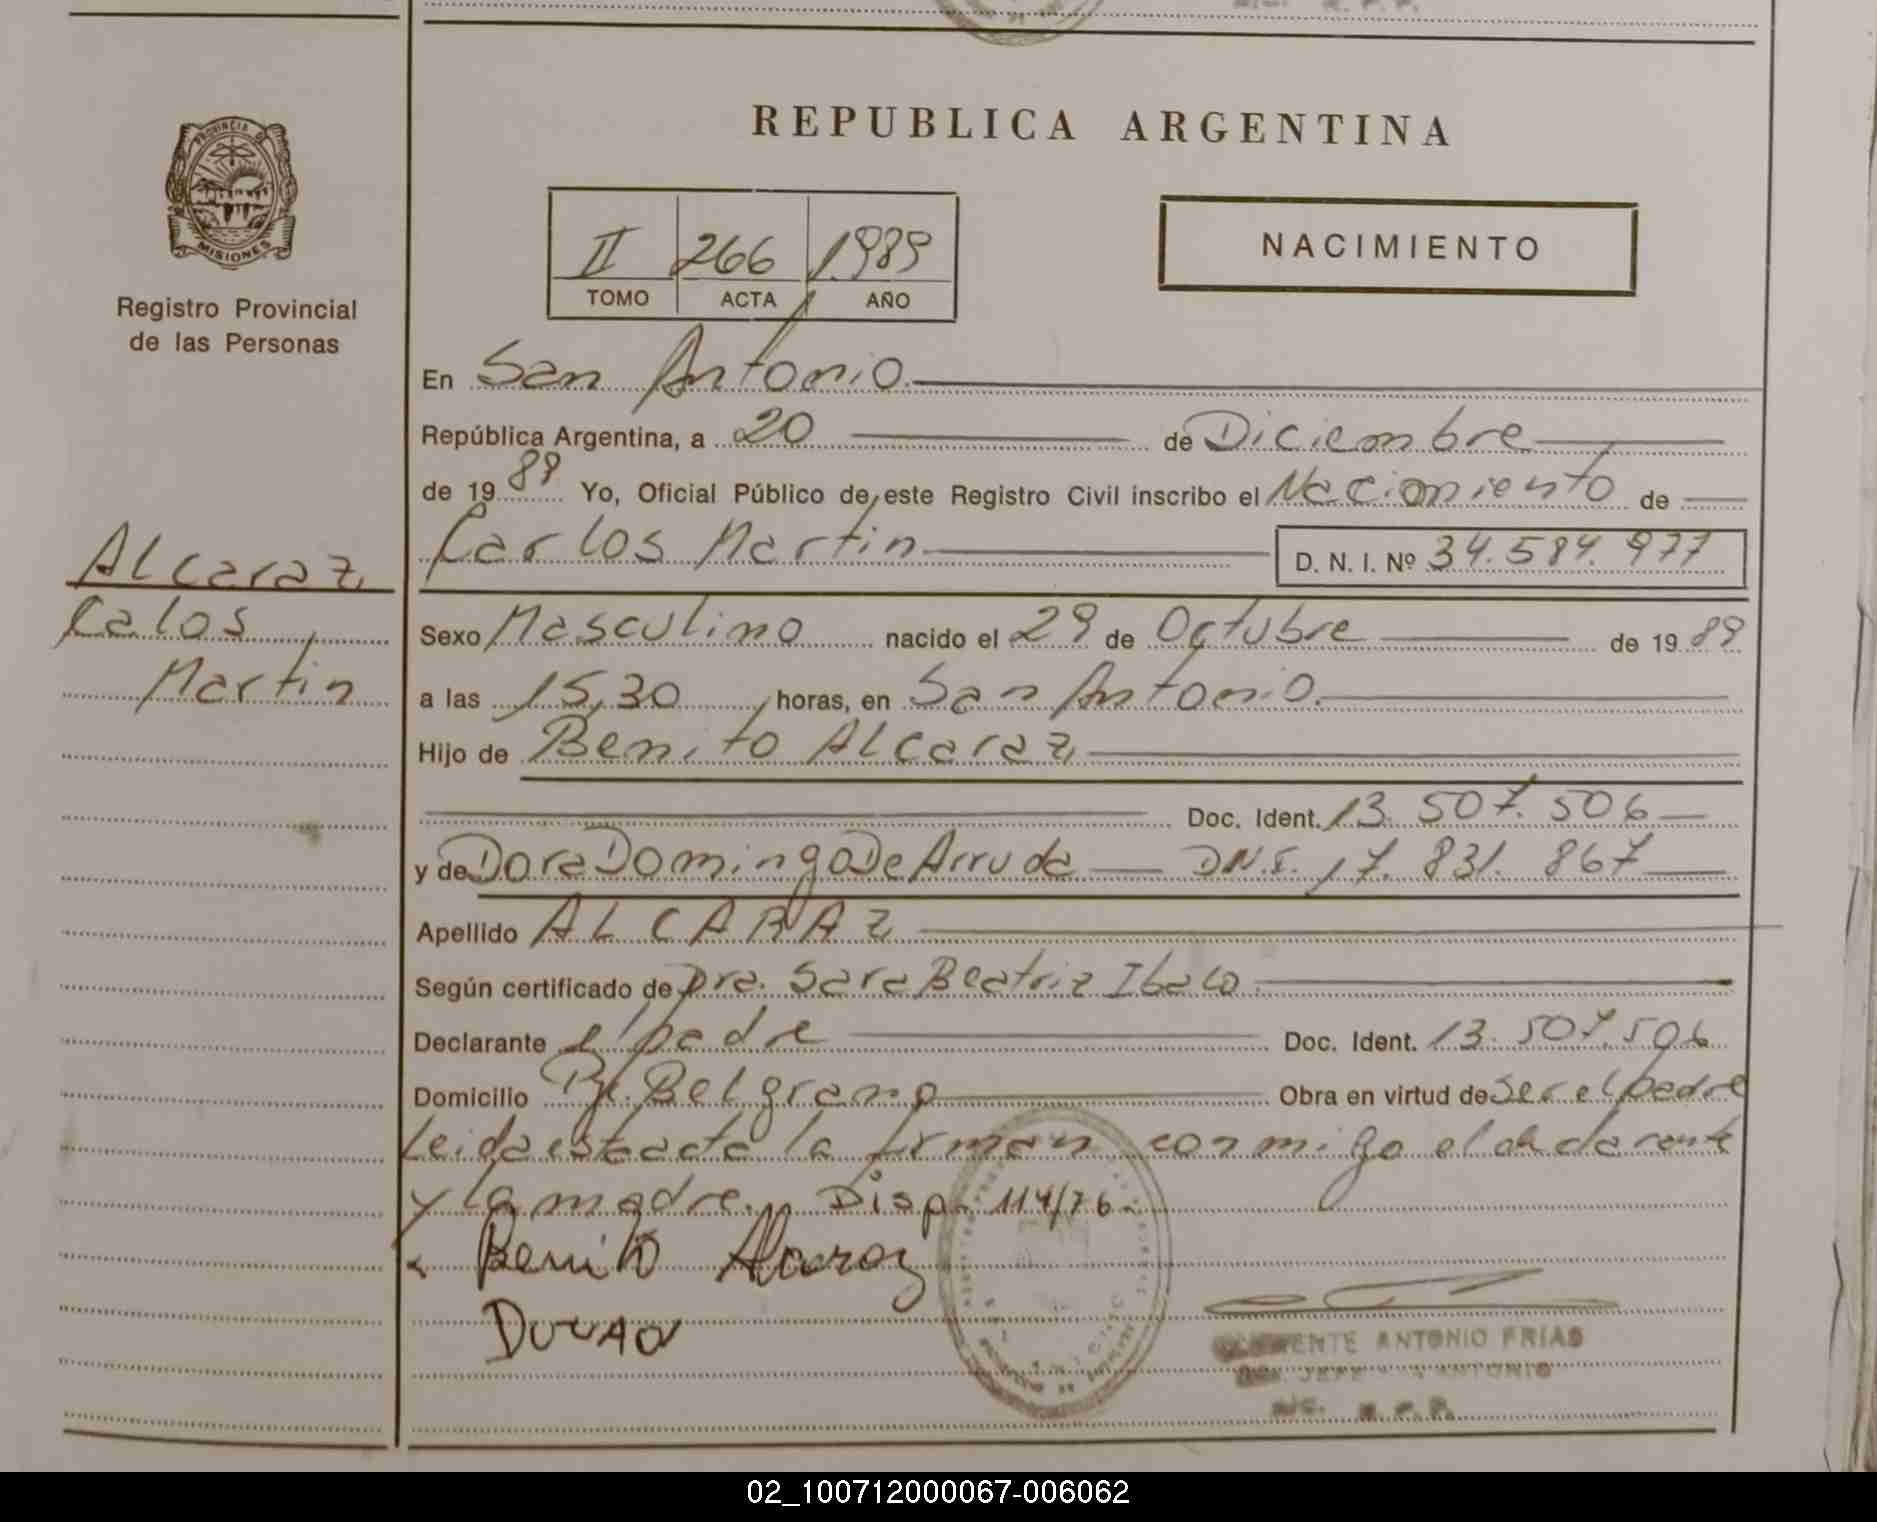 REPUBLICA ARGENTINA
PROVINCIA DE
MISIONES
Registro Provincial
de las Personas
II 266 1989
TOMO ACTA AÑO
NACIMIENTO
En San Antonio
República Argentina, a 20 de Diciembre
de 1989 Yo, Oficial Público de este Registro Civil inscribo el Nacimiento de
Carlos Martin D. N. I. Nº 34.584.977
Alcaraz
Calos
Martin
Sexo Masculino nacido el 29 de Octubre de 1989
a las 15,30 horas, en San Antonio.
Hijo de Benito Alcaraz
Doc. Ident. 13.507.506
y de Dora Dominga De Arruda D.N.I. 17.831.867
Apellido ALCARAZ
Según certificado de Dra. Sara Beatriz
Declarante el padre Doc. Ident. 13.507.506
Domicilio Pje. Belgrano Obra en virtud de Ser el padre
Leida esta acta la firman conmigo el declarante
y la madre. Disp. 114/76.
Benito Alcaraz
ENTE ANTONIO FRIAS
JEFE ANTONIO
R.P.P.
02_100712000067-006062